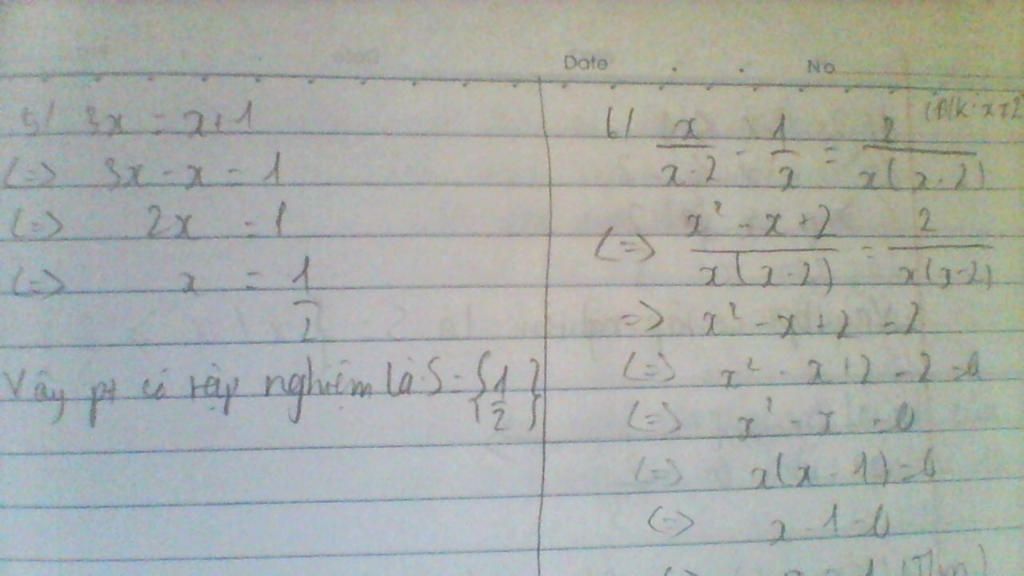 Date No
5/ 3x = x+1
(=) 3x - x = 1
(=) 2x = 1
(=) x = 1/2
Vậy pt có tập nghiệm là S = {1/2}
6/ x/(x-2) - 1/x = 2/(x(x-2))
(=) (x² - x + 2)/(x(x-2)) = 2/(x(x-2))
=> x² - x + 2 = 2
(=) x² - x + 2 - 2 = 0
(=) x² - x = 0
(=) x(x - 1) = 0
(=) x - 1 = 0